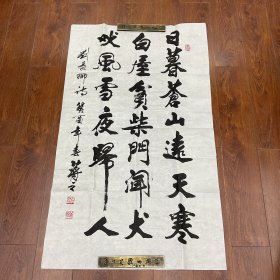 日暮蒼山遠天寒
白屋貧柴門聞犬
吠風雪夜歸人
劉長卿詩